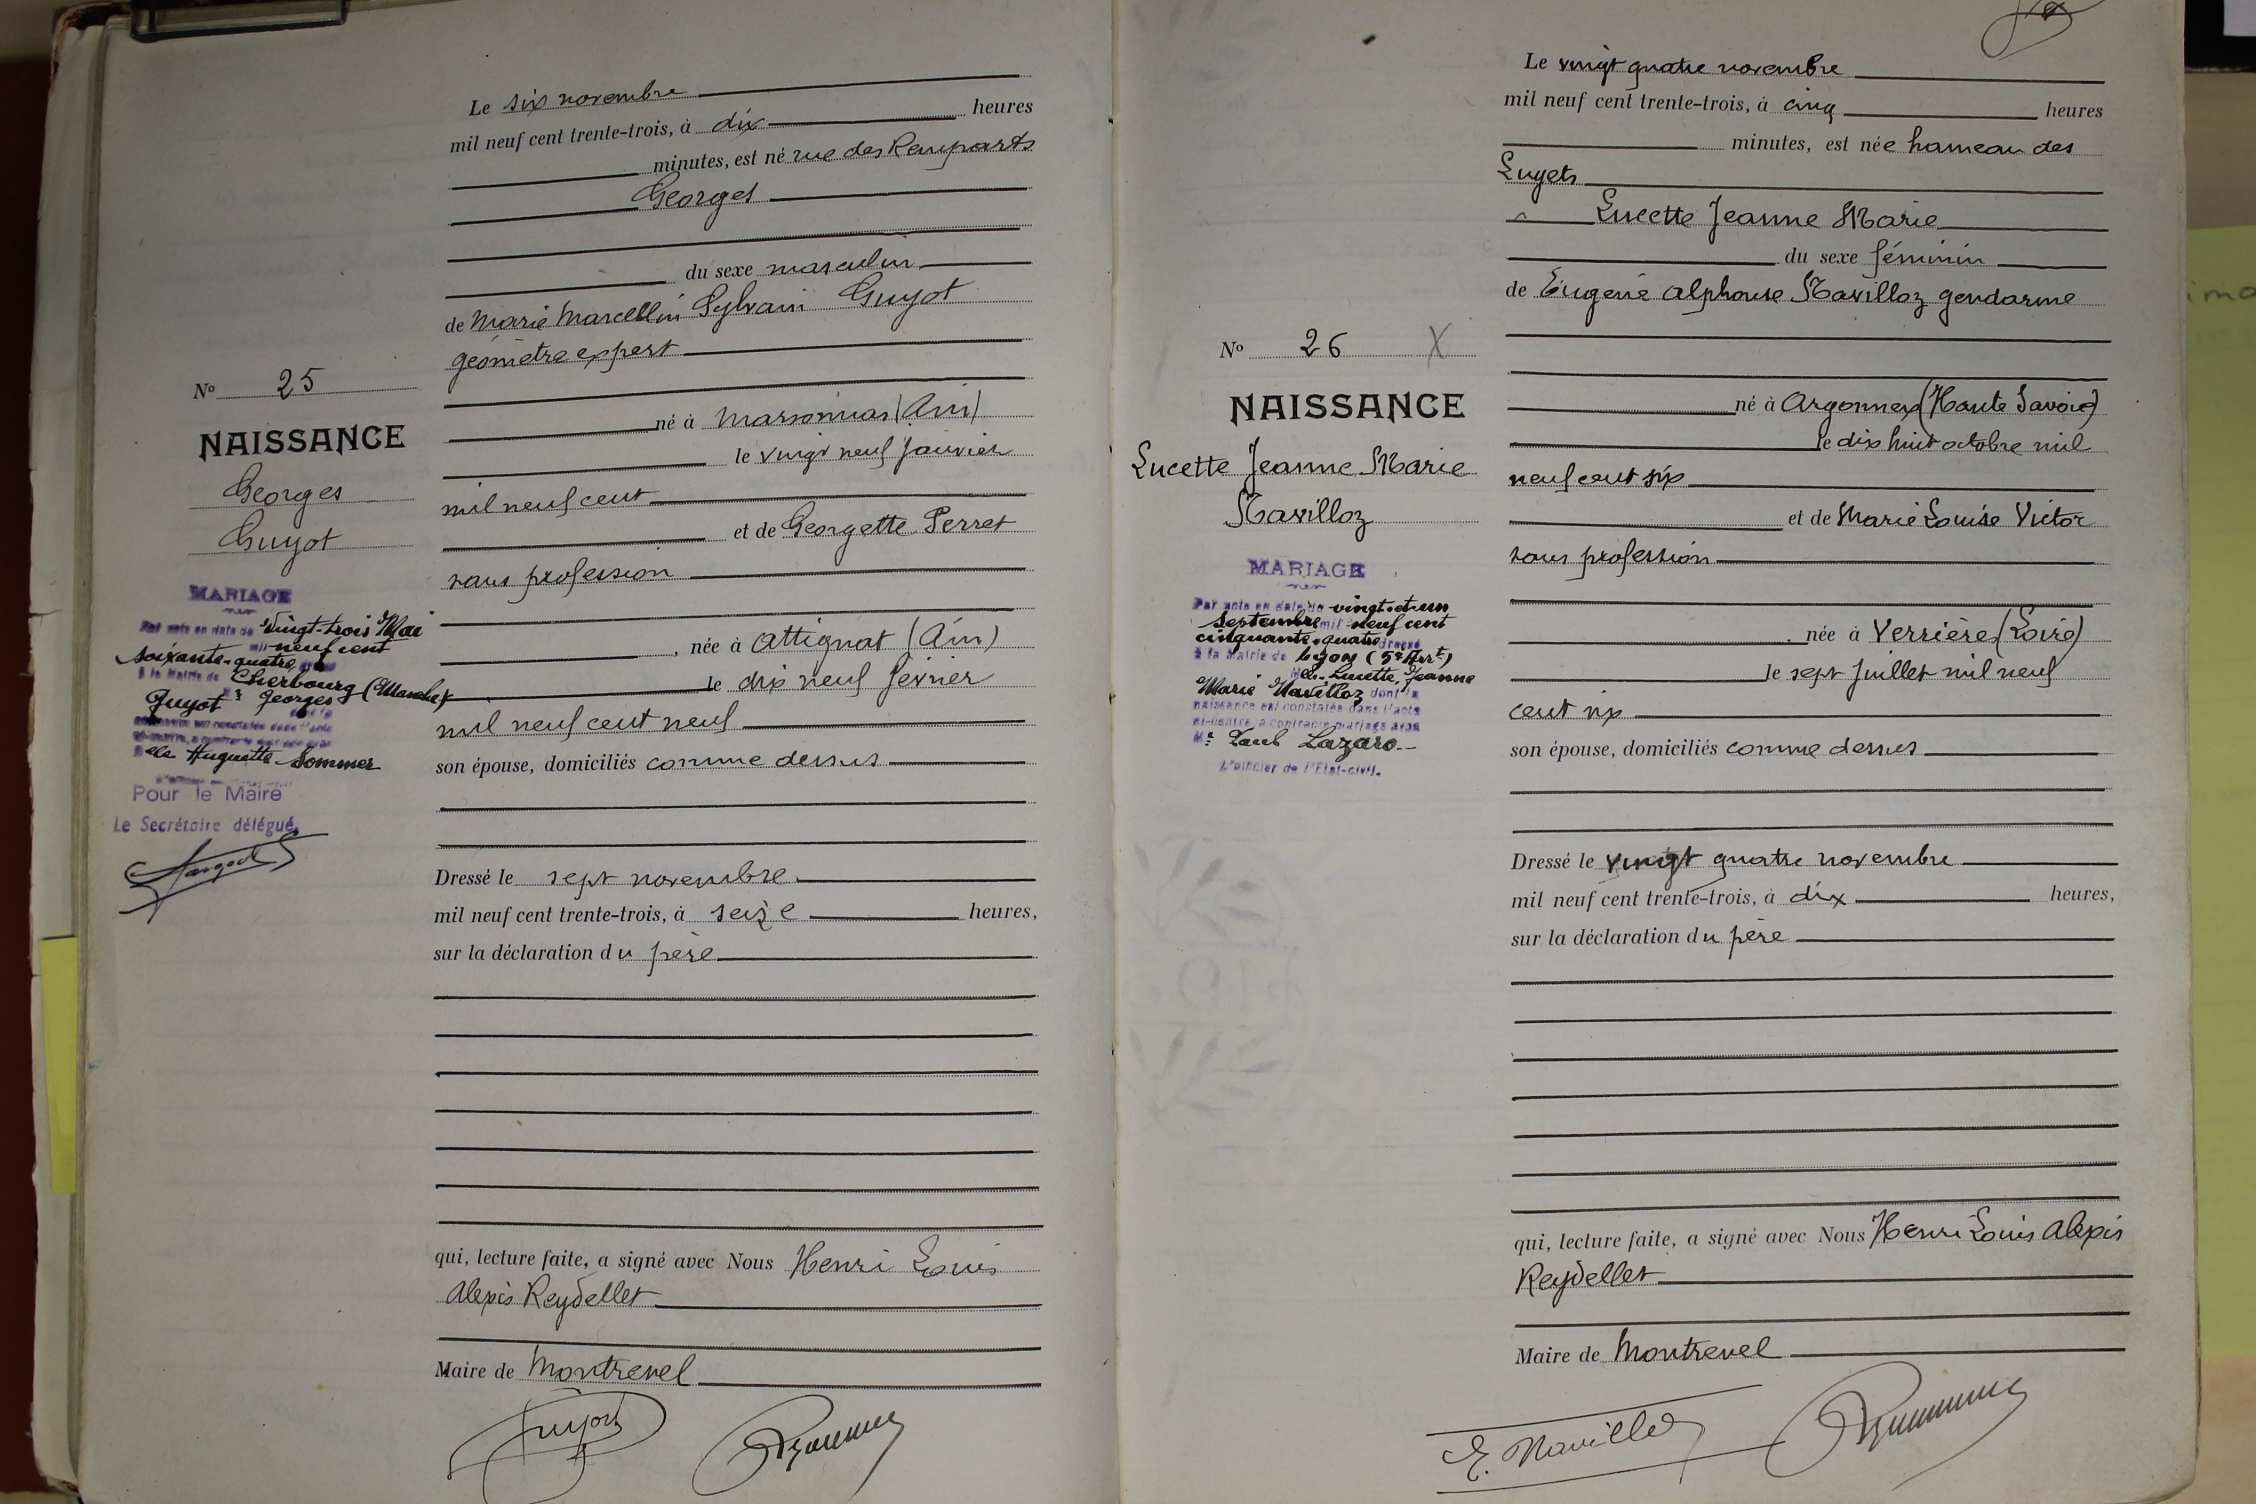 Le six novembre
mil neuf cent trente-trois, à dix heures
minutes, est né rue des Remparts
Georges
du sexe masculin
de Marie Marcellin Sylvain Guyot
géomètre expert
né à Marsonnas (Ain)
le vingt neuf Janvier
mil neuf cent
et de Georgette Perret
sans profession
, née à Attignat (Ain)
le dix neuf février
mil neuf cent neuf
son épouse, domiciliés comme dessus
Dressé le sept novembre
mil neuf cent trente-trois, à seize heures,
sur la déclaration du père
qui, lecture faite, a signé avec Nous Henri Louis
Alexis Reydellet
Maire de Montrevel
Guyot
No 25
NAISSANCE
Georges
Guyot
MARIAGE
Par acte en date du Vingt-trois Mai
mil neuf cent
soixante-quatre
à la Mairie de Cherbourg (Manche)
Guyot Georges
elle Huguette Sommer
Pour le Maire
Le Secrétaire délégué,
Le vingt quatre novembre
mil neuf cent trente-trois, à cinq heures
minutes, est née hameau des
Luyets
Lucette Jeanne Marie
du sexe féminin
de Eugène Alphonse Navilloz gendarme
né à Argonnex (Haute Savoie)
le dix huit octobre mil
neuf cent six
et de Marie Louise Victor
sans profession
, née à Verrière (Loire)
le sept Juillet mil neuf
cent six
son épouse, domiciliés comme dessus
Dressé le vingt quatre novembre
mil neuf cent trente-trois, à dix heures,
sur la déclaration du père
qui, lecture faite, a signé avec Nous Henri Louis Alexis
Reydellet
Maire de Montrevel
E. Navilloz
No 26 X
NAISSANCE
Lucette Jeanne Marie
Navilloz
MARIAGE
Par acte en date du vingt-et-un
Septembre mil neuf cent
cinquante-quatre dressé
à la Mairie de Lyon (5e Arrt)
Melle Lucette, Jeanne
Marie Navilloz dont la
naissance est constatée dans l'acte
ci-contre, a contracté mariage avec
Mr Paul Lazaro
L'officier de l'Etat-civil.